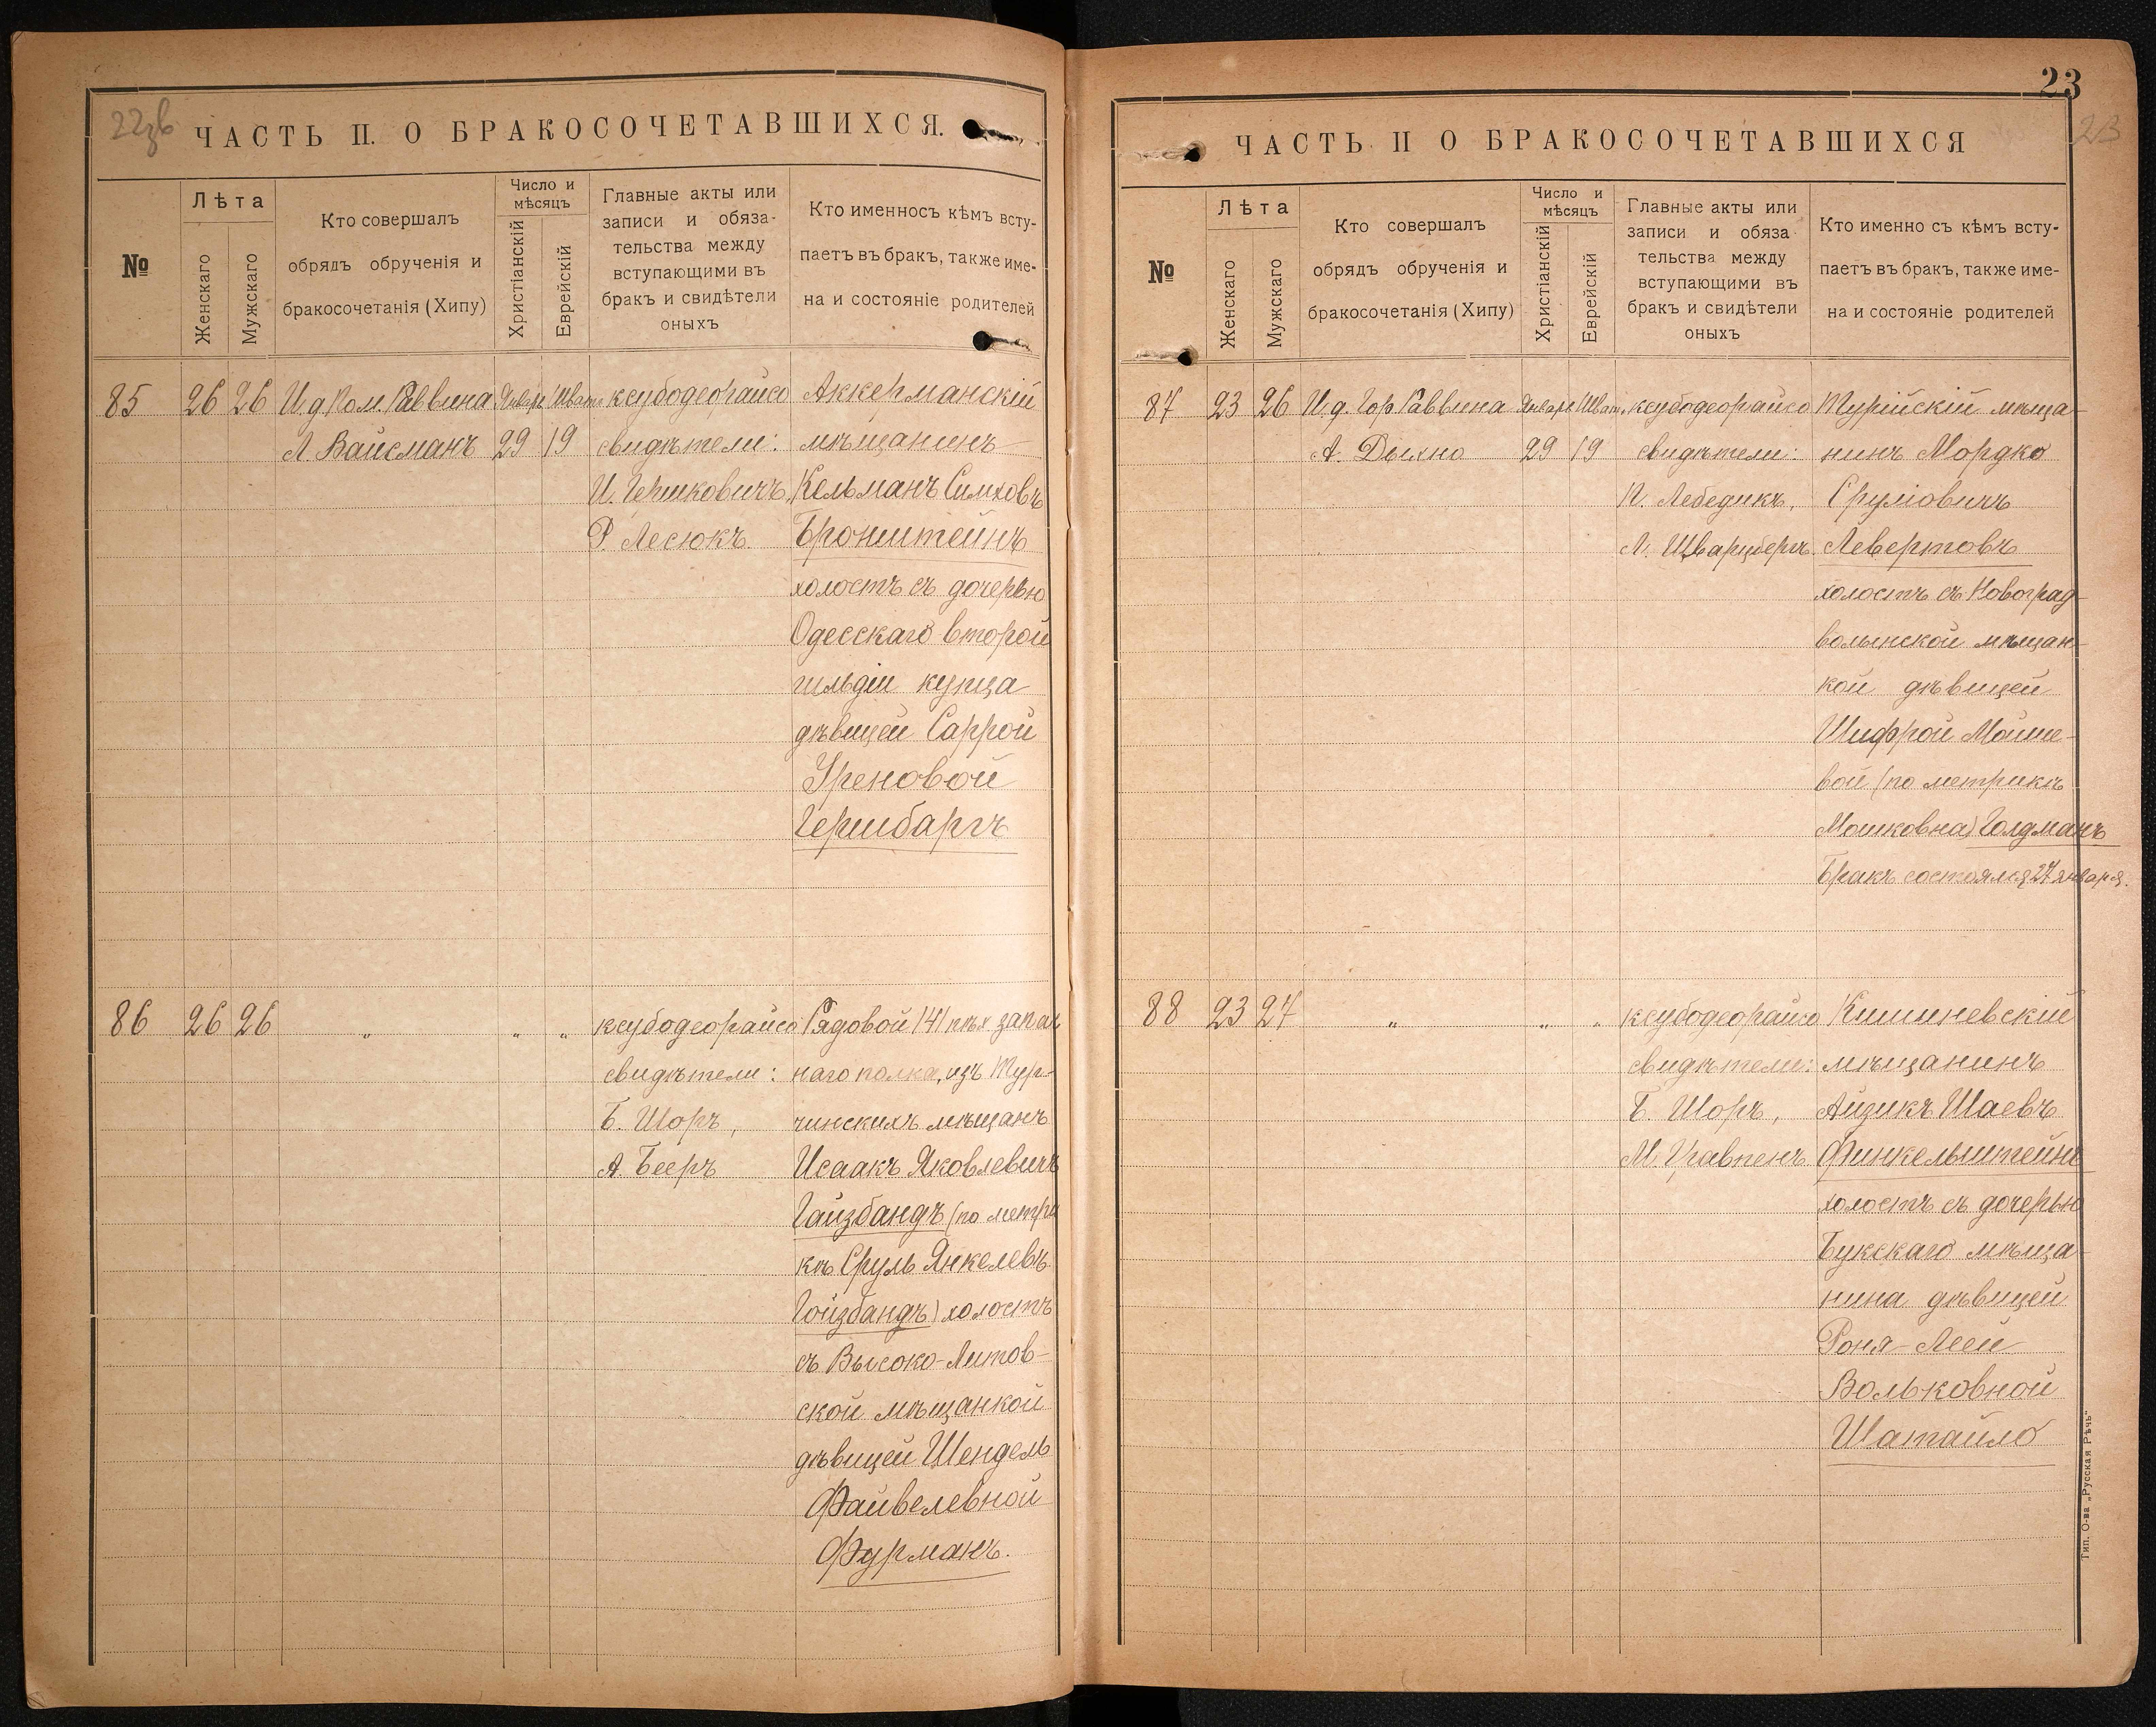 22зв
ЧАСТЬ II. О БРАКОСОЧЕТАВШИХСЯ.
№
Лѣта
Женскаго
Мужскаго
Кто совершалъ
обрядъ обрученія и
бракосочетанія (Хипу)
Число и
мѣсяцъ
Христіанскій
Еврейскій
Главные акты или
записи и обяза-
тельства между
вступающими въ
бракъ и свидѣтели
оныхъ
Кто именносъ кѣмъ всту-
паетъ въ бракъ, также име-
на и состояніе родителей
85 26 26 И д Ком. Раввина Январь Шват ксубодеорайсо Аккерманскій
Л. Вайсманъ 29 19 свидѣтели: мѣщанинъ
И. Гершковичъ, Кельманъ Симховъ
Р. Лесюкъ. Бронштейнъ
холостъ съ дочерью
Одесскаго второй
гильдіи купца
дѣвицей Саррой
Уреновой
Гершбаргъ
86 26 26 „ „ „ ксубодеорайсо Рядовой 141 пѣх запас
свидѣтели: наго полка, изъ Тур-
Б. Шоръ, чинскихъ мѣщанъ
А. Бееръ Исаакъ Яковлевичъ
Гайзбандъ (по метри
кѣ Сруль Янкелевъ
Гойзбандъ) холостъ
съ Высоко-Литов-
ской мѣщанкой
дѣвицей Шендель
Файвелевной
Фурманъ.
23
23
ЧАСТЬ II О БРАКОСОЧЕТАВШИХСЯ
№
Лѣта
Женскаго
Мужскаго
Кто совершалъ
обрядъ обрученія и
бракосочетанія (Хипу)
Число и
мѣсяцъ
Христіанскій
Еврейскій
Главные акты или
записи и обяза
тельства между
вступающими въ
бракъ и свидѣтели
оныхъ
Кто именно съ кѣмъ всту-
паетъ въ бракъ, также име-
на и состояніе родителей
87 23 26 И. д. Гор Раввина Январь Шват. ксубодеорайсо Турійскій мѣща-
А. Дыхно 29 19 свидѣтели: нинъ Мордко
П. Лебедикъ, Сруліовичъ
Л. Шварцбергъ. Левертовъ
холостъ съ Новоград-
волынской мѣщан-
кой дѣвицей
Шифрой Мойше-
вой (по метрикѣ
Мошковна) Голдманъ
Бракъ состоялся 27 января.
88 23 27 „ „ „ ксубодеорайсо Кишиневскій
свидѣтели: мѣщанинъ
Б. Шоръ, Айзикъ Шаевъ
М. Уравпенъ. Финкельштейнъ
холостъ съ дочерью
Букскаго мѣща-
нина дѣвицей
Роня-Леей
Вольковной
Шатайло
Тип. О-ва „Русская Рѣчь“